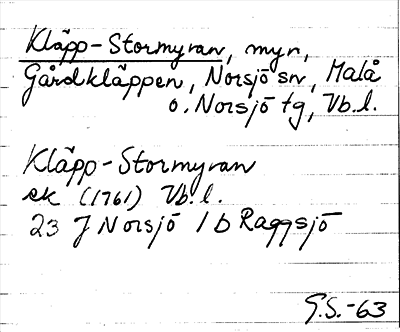 Kläpp-Stormyran, myr,
Gårdkläppen, Norsjö sn, Malå
o. Norsjö tg, Vb.l.
Kläpp-Stormyran
ek (1761) Vb.l.
23 J Norsjö 1 b Raggsjö
G.S.-63